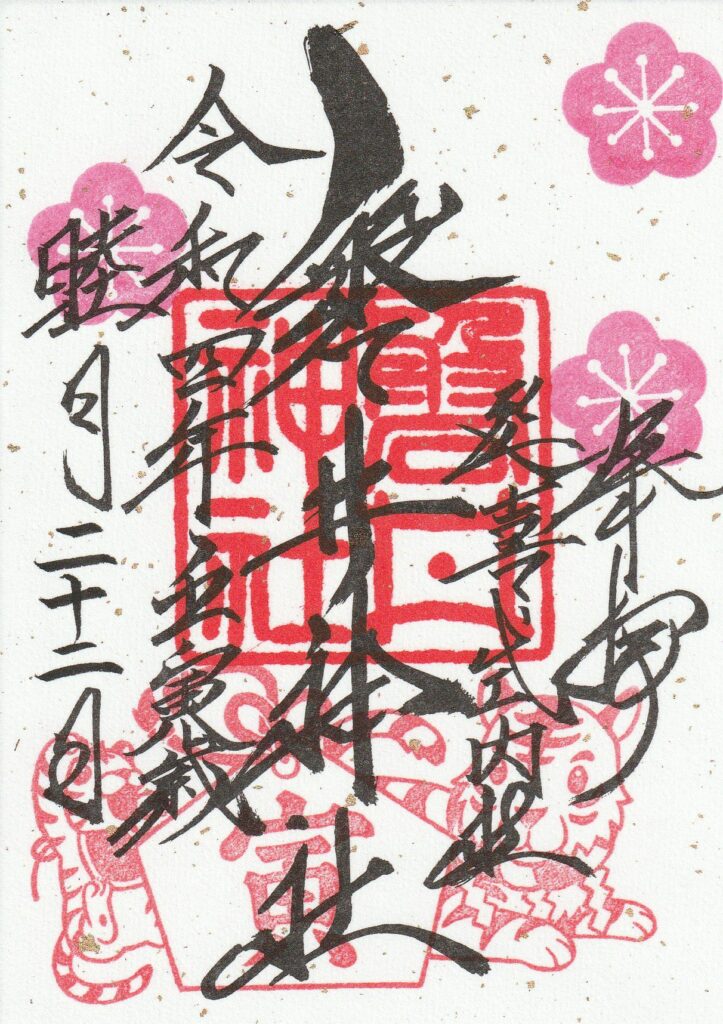 奉拝
延喜式内社
磐井神社
令和四年壬寅歳
睦月二十二日
磐井
神社
寅